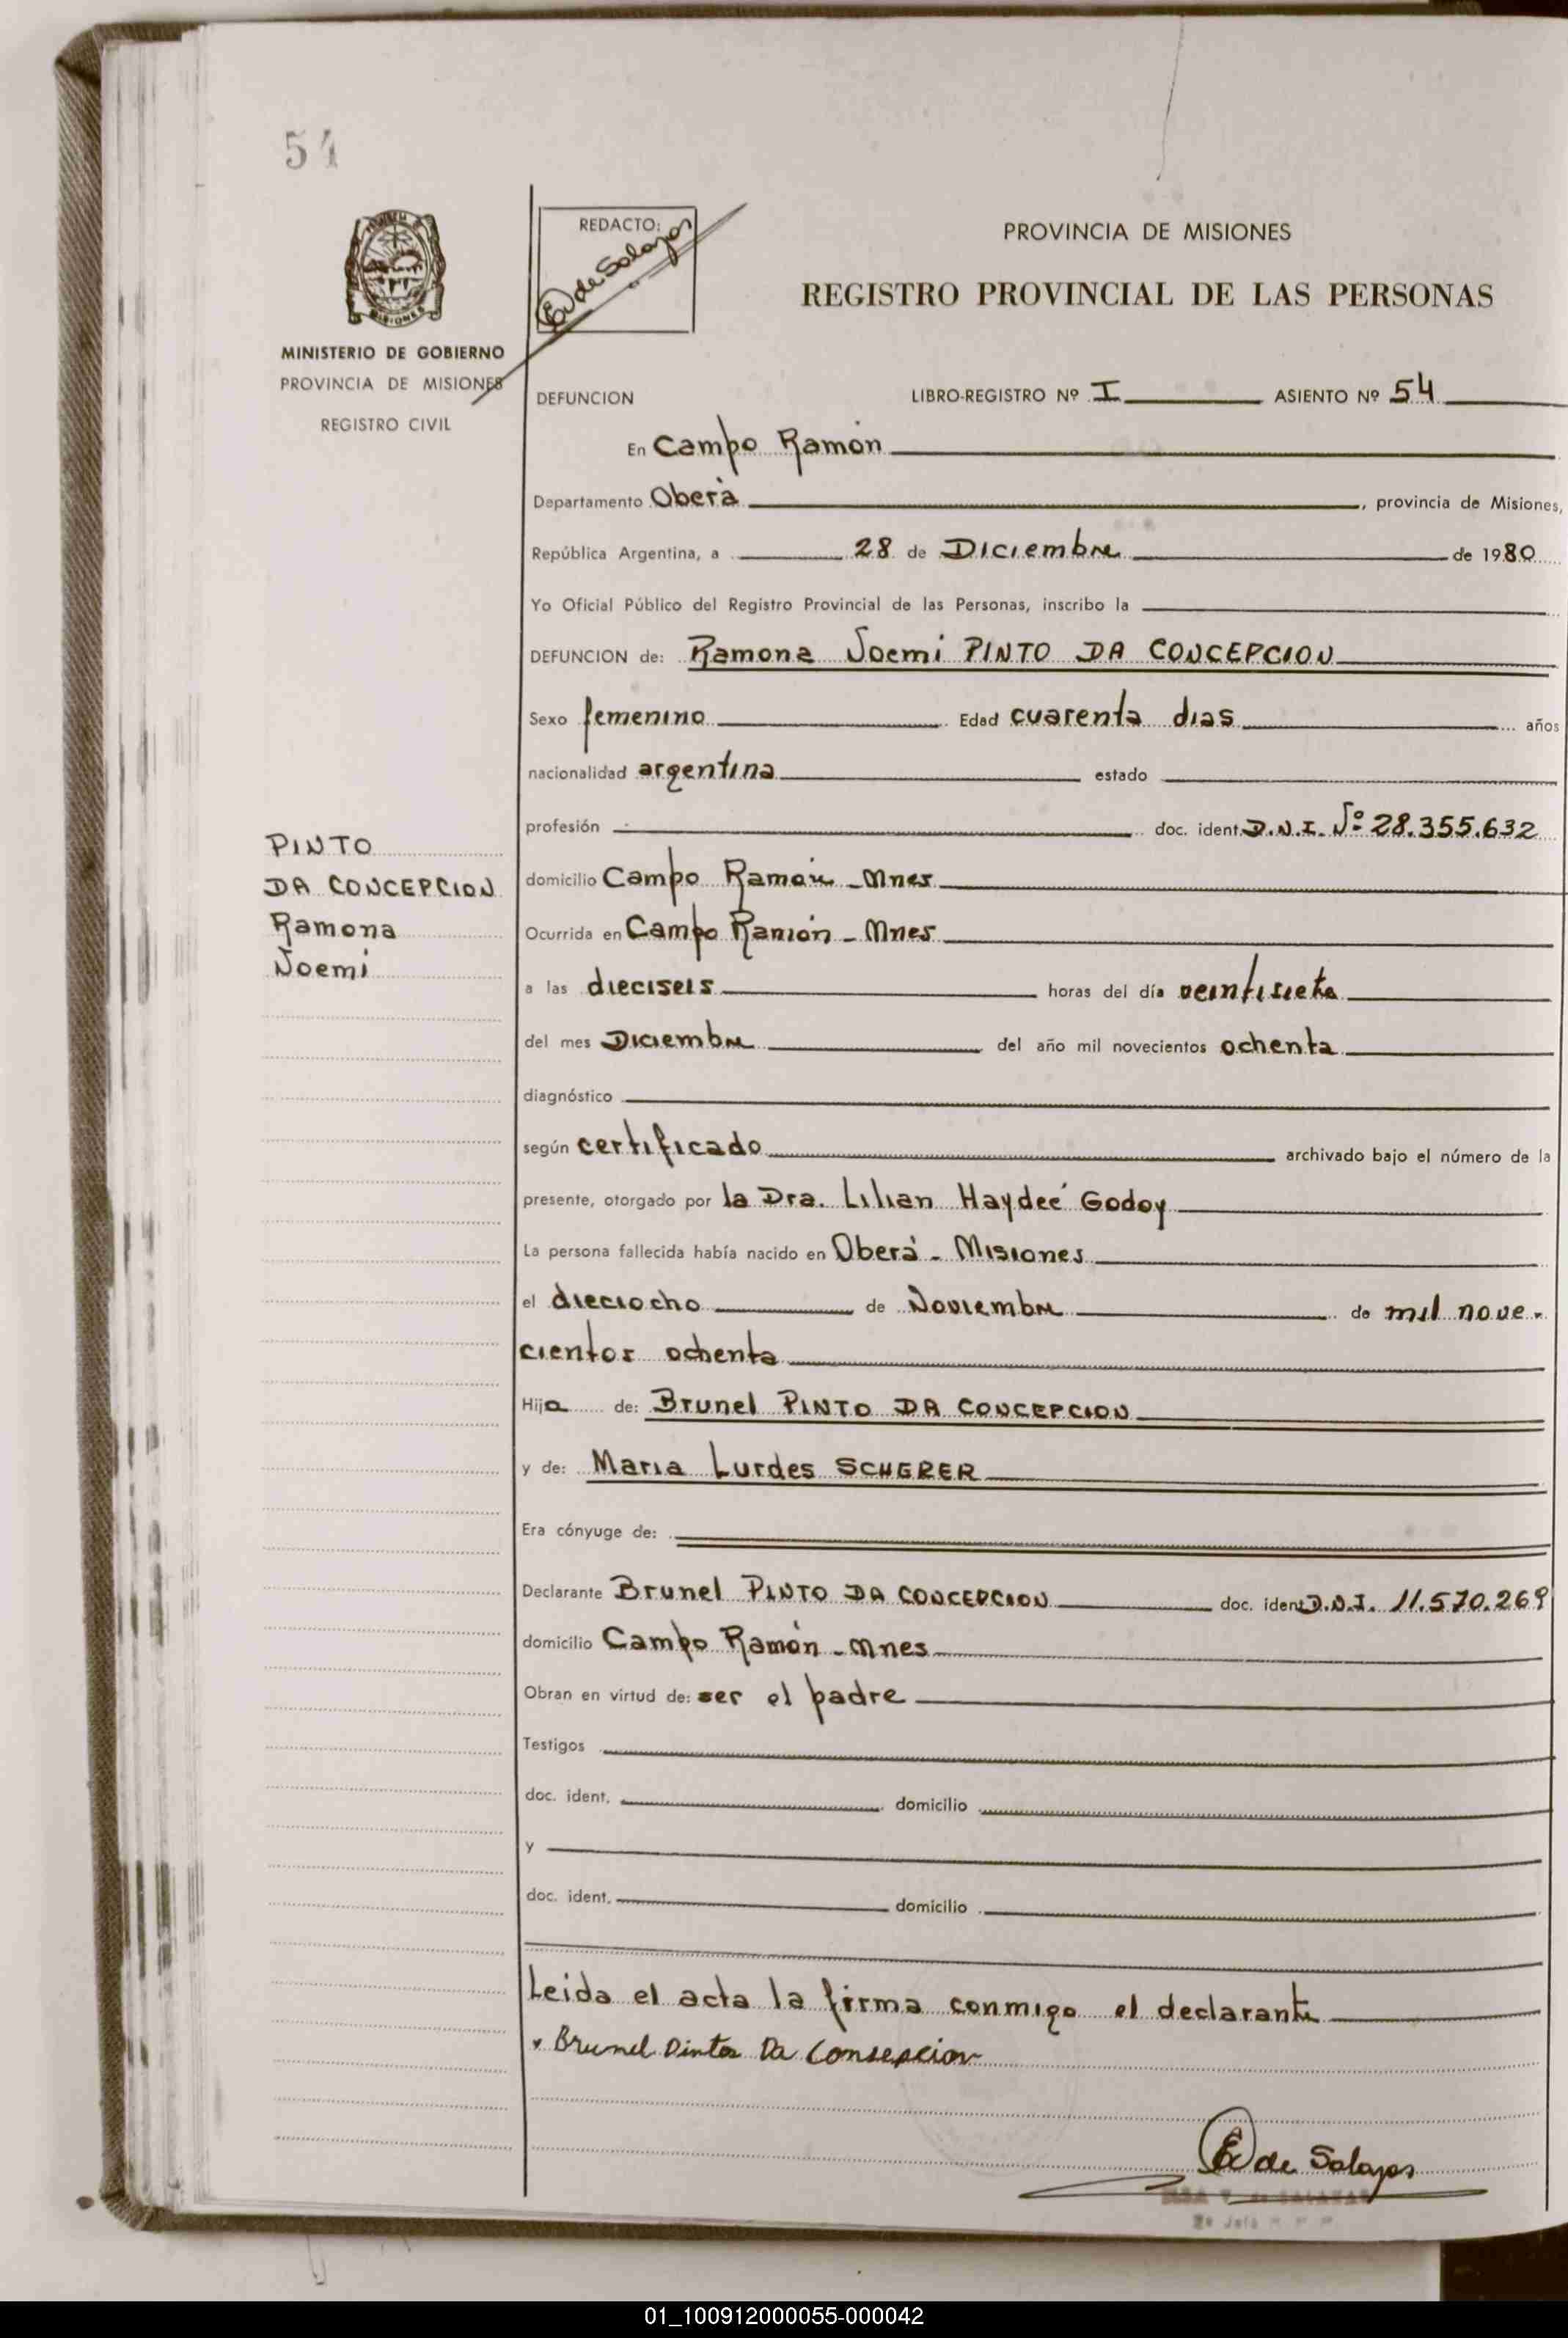 54
MINISTERIO DE GOBIERNO
PROVINCIA DE MISIONES
REGISTRO CIVIL
REDACTO:
de Salazar
PROVINCIA DE MISIONES
REGISTRO PROVINCIAL DE LAS PERSONAS
DEFUNCION LIBRO-REGISTRO Nº I ASIENTO Nº 54
En Campo Ramón
Departamento Oberá, provincia de Misiones,
República Argentina, a 28 de Diciembre de 1980
Yo Oficial Público del Registro Provincial de las Personas, inscribo la
DEFUNCION de: Ramona Noemi PINTO DA CONCEPCION
Sexo femenino Edad cuarenta dias años
nacionalidad argentina estado
profesión doc. ident. D.N.I. Nº 28.355.632
PINTO
DA CONCEPCION
Ramona
Noemi
domicilio Campo Ramón - Mnes
Ocurrida en Campo Ramón - Mnes
a las dieciseis horas del día veintisiete
del mes Diciembre del año mil novecientos ochenta
diagnóstico
según certificado archivado bajo el número de la
presente, otorgado por la Dra. Lilian Haydeé Godoy
La persona fallecida había nacido en Oberá - Misiones
el dieciocho de Noviembre de mil nove-
cientos ochenta
Hija de: Brunel PINTO DA CONCEPCION
y de: Maria Lurdes SCHERER
Era cónyuge de:
Declarante Brunel PINTO DA CONCEPCION doc. ident. D.N.I. 11.570.269
domicilio Campo Ramón - Mnes
Obran en virtud de: ser el padre
Testigos
doc. ident. domicilio
y
doc. ident. domicilio
Leida el acta la firma conmigo el declarante
Brunel Pinto Da Consepcion
de Salazar
01_100912000055-000042